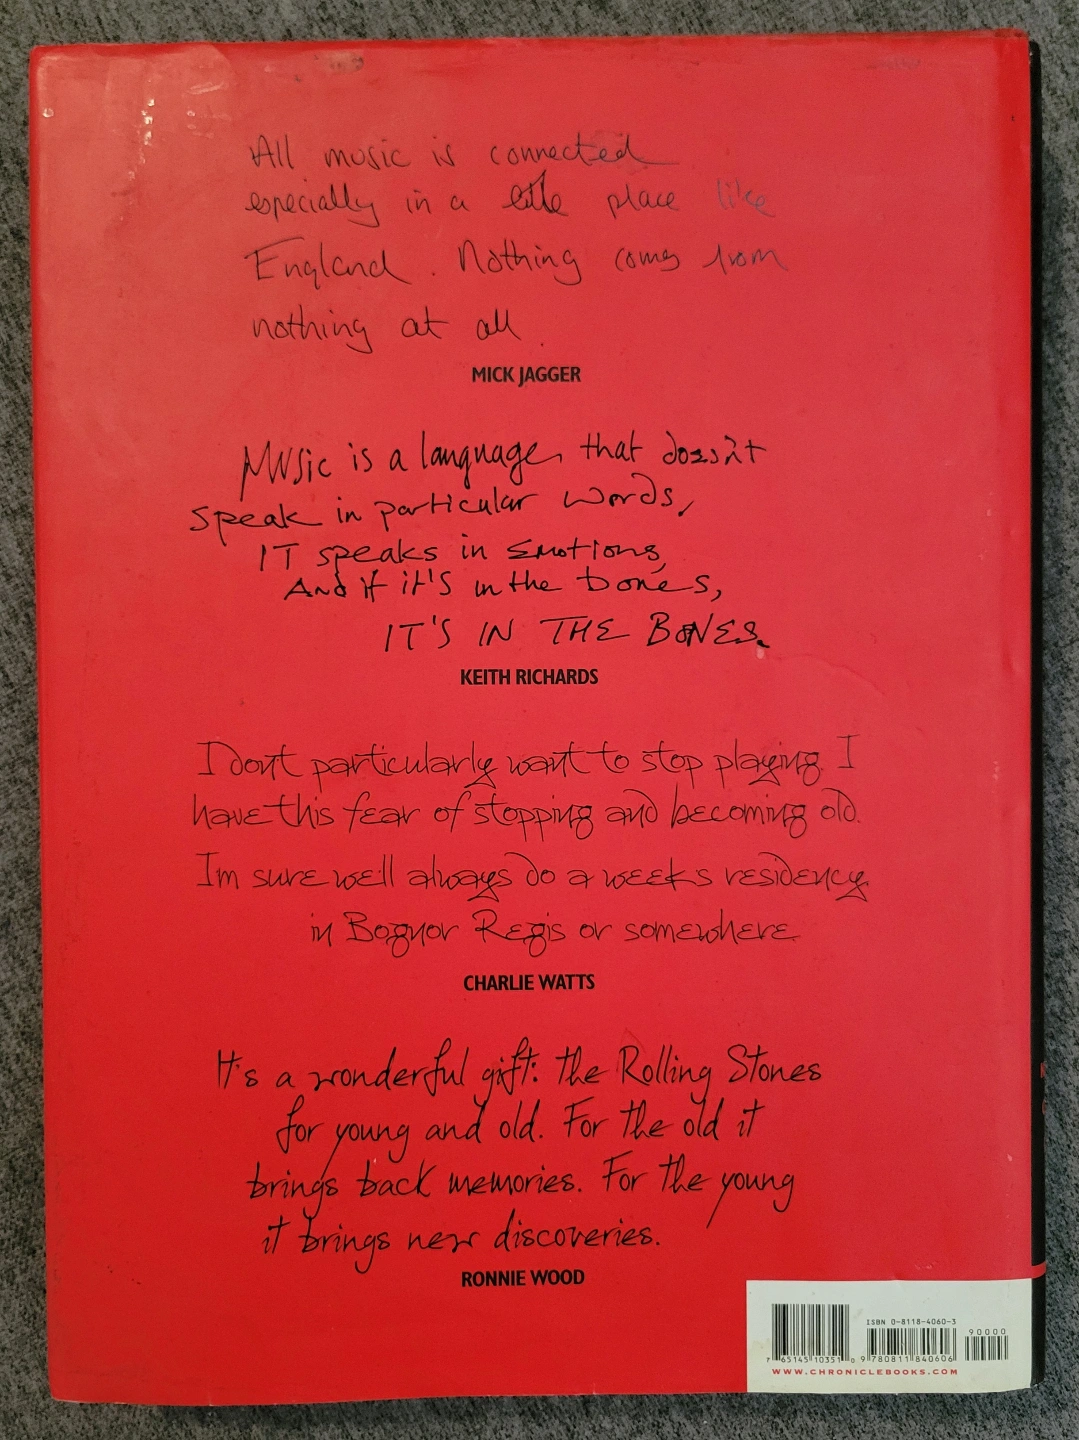 All music is connected
especially in a little place like
England. Nothing comes from
nothing at all.
MICK JAGGER
Music is a language, that doesn't
speak in particular words,
IT speaks in Emotions,
And if it's in the bones,
IT'S IN THE BONES.
KEITH RICHARDS
I dont particularly want to stop playing. I
have this fear of stopping and becoming old.
Im sure well always do a weeks residency
in Bognor Regis or somewhere
CHARLIE WATTS
It's a wonderful gift: the Rolling Stones
for young and old. For the old it
brings back memories. For the young
it brings new discoveries.
RONNIE WOOD
ISBN 0-8118-4060-3
90000
7 65145 10351 0
9 780811 840606
WWW.CHRONICLEBOOKS.COM